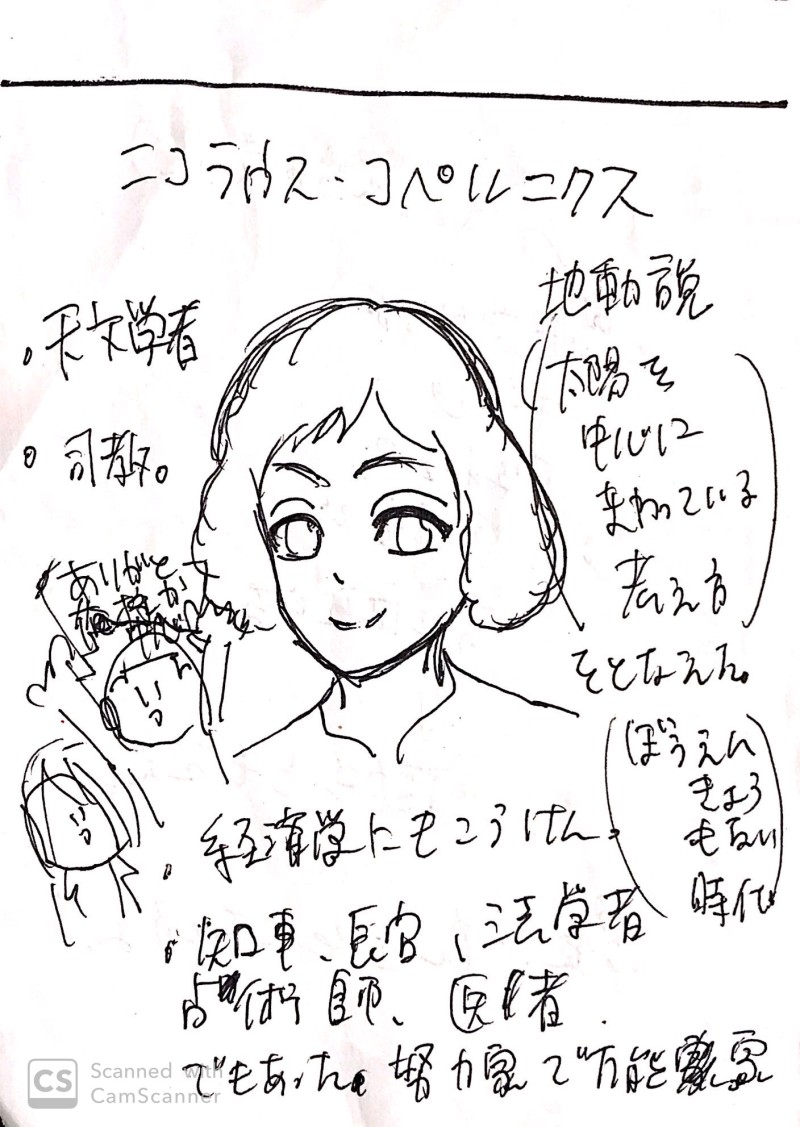 ニコラウス・コペルニクス
・天文学者
・司教。
地動説
(太陽を
中心に
まわっている
考え方)
をとなえた。
(ぼうえん
きょう
もない
時代)
ありがとな
・経済学にもこうけん。
・知事、長官、法学者
占術師、医者
でもあった。努力家で万能家
CS Scanned with
CamScanner